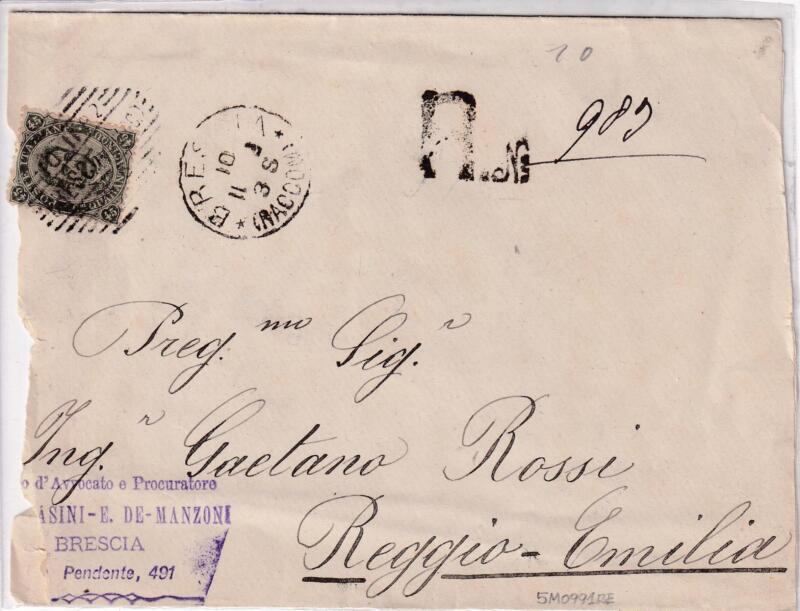 10
R. No 983
BRESCIA
10
11
3 S
(RACCOM)
Preg.mo Sig.r
Ing.r Gaetano Rossi
Reggio-Emilia
o d'Avvocato e Procuratore
ASINI-E. DE-MANZONI
BRESCIA
Pendente, 491
5M0991RE